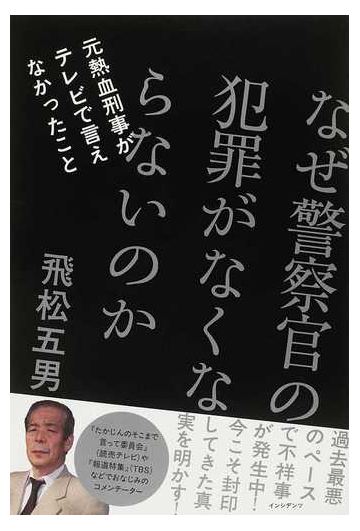 なぜ警察官の
犯罪がなくな
らないのか
元熱血刑事が
テレビで言え
なかったこと
飛松五男
過去最悪
のペース
で不祥事
が発生中！
今こそ封印
してきた真
実を明かす！
インシデンツ
「たかじんのそこまで
言って委員会」
（読売テレビ）や
「報道特集」（TBS）
などでおなじみの
コメンテーター